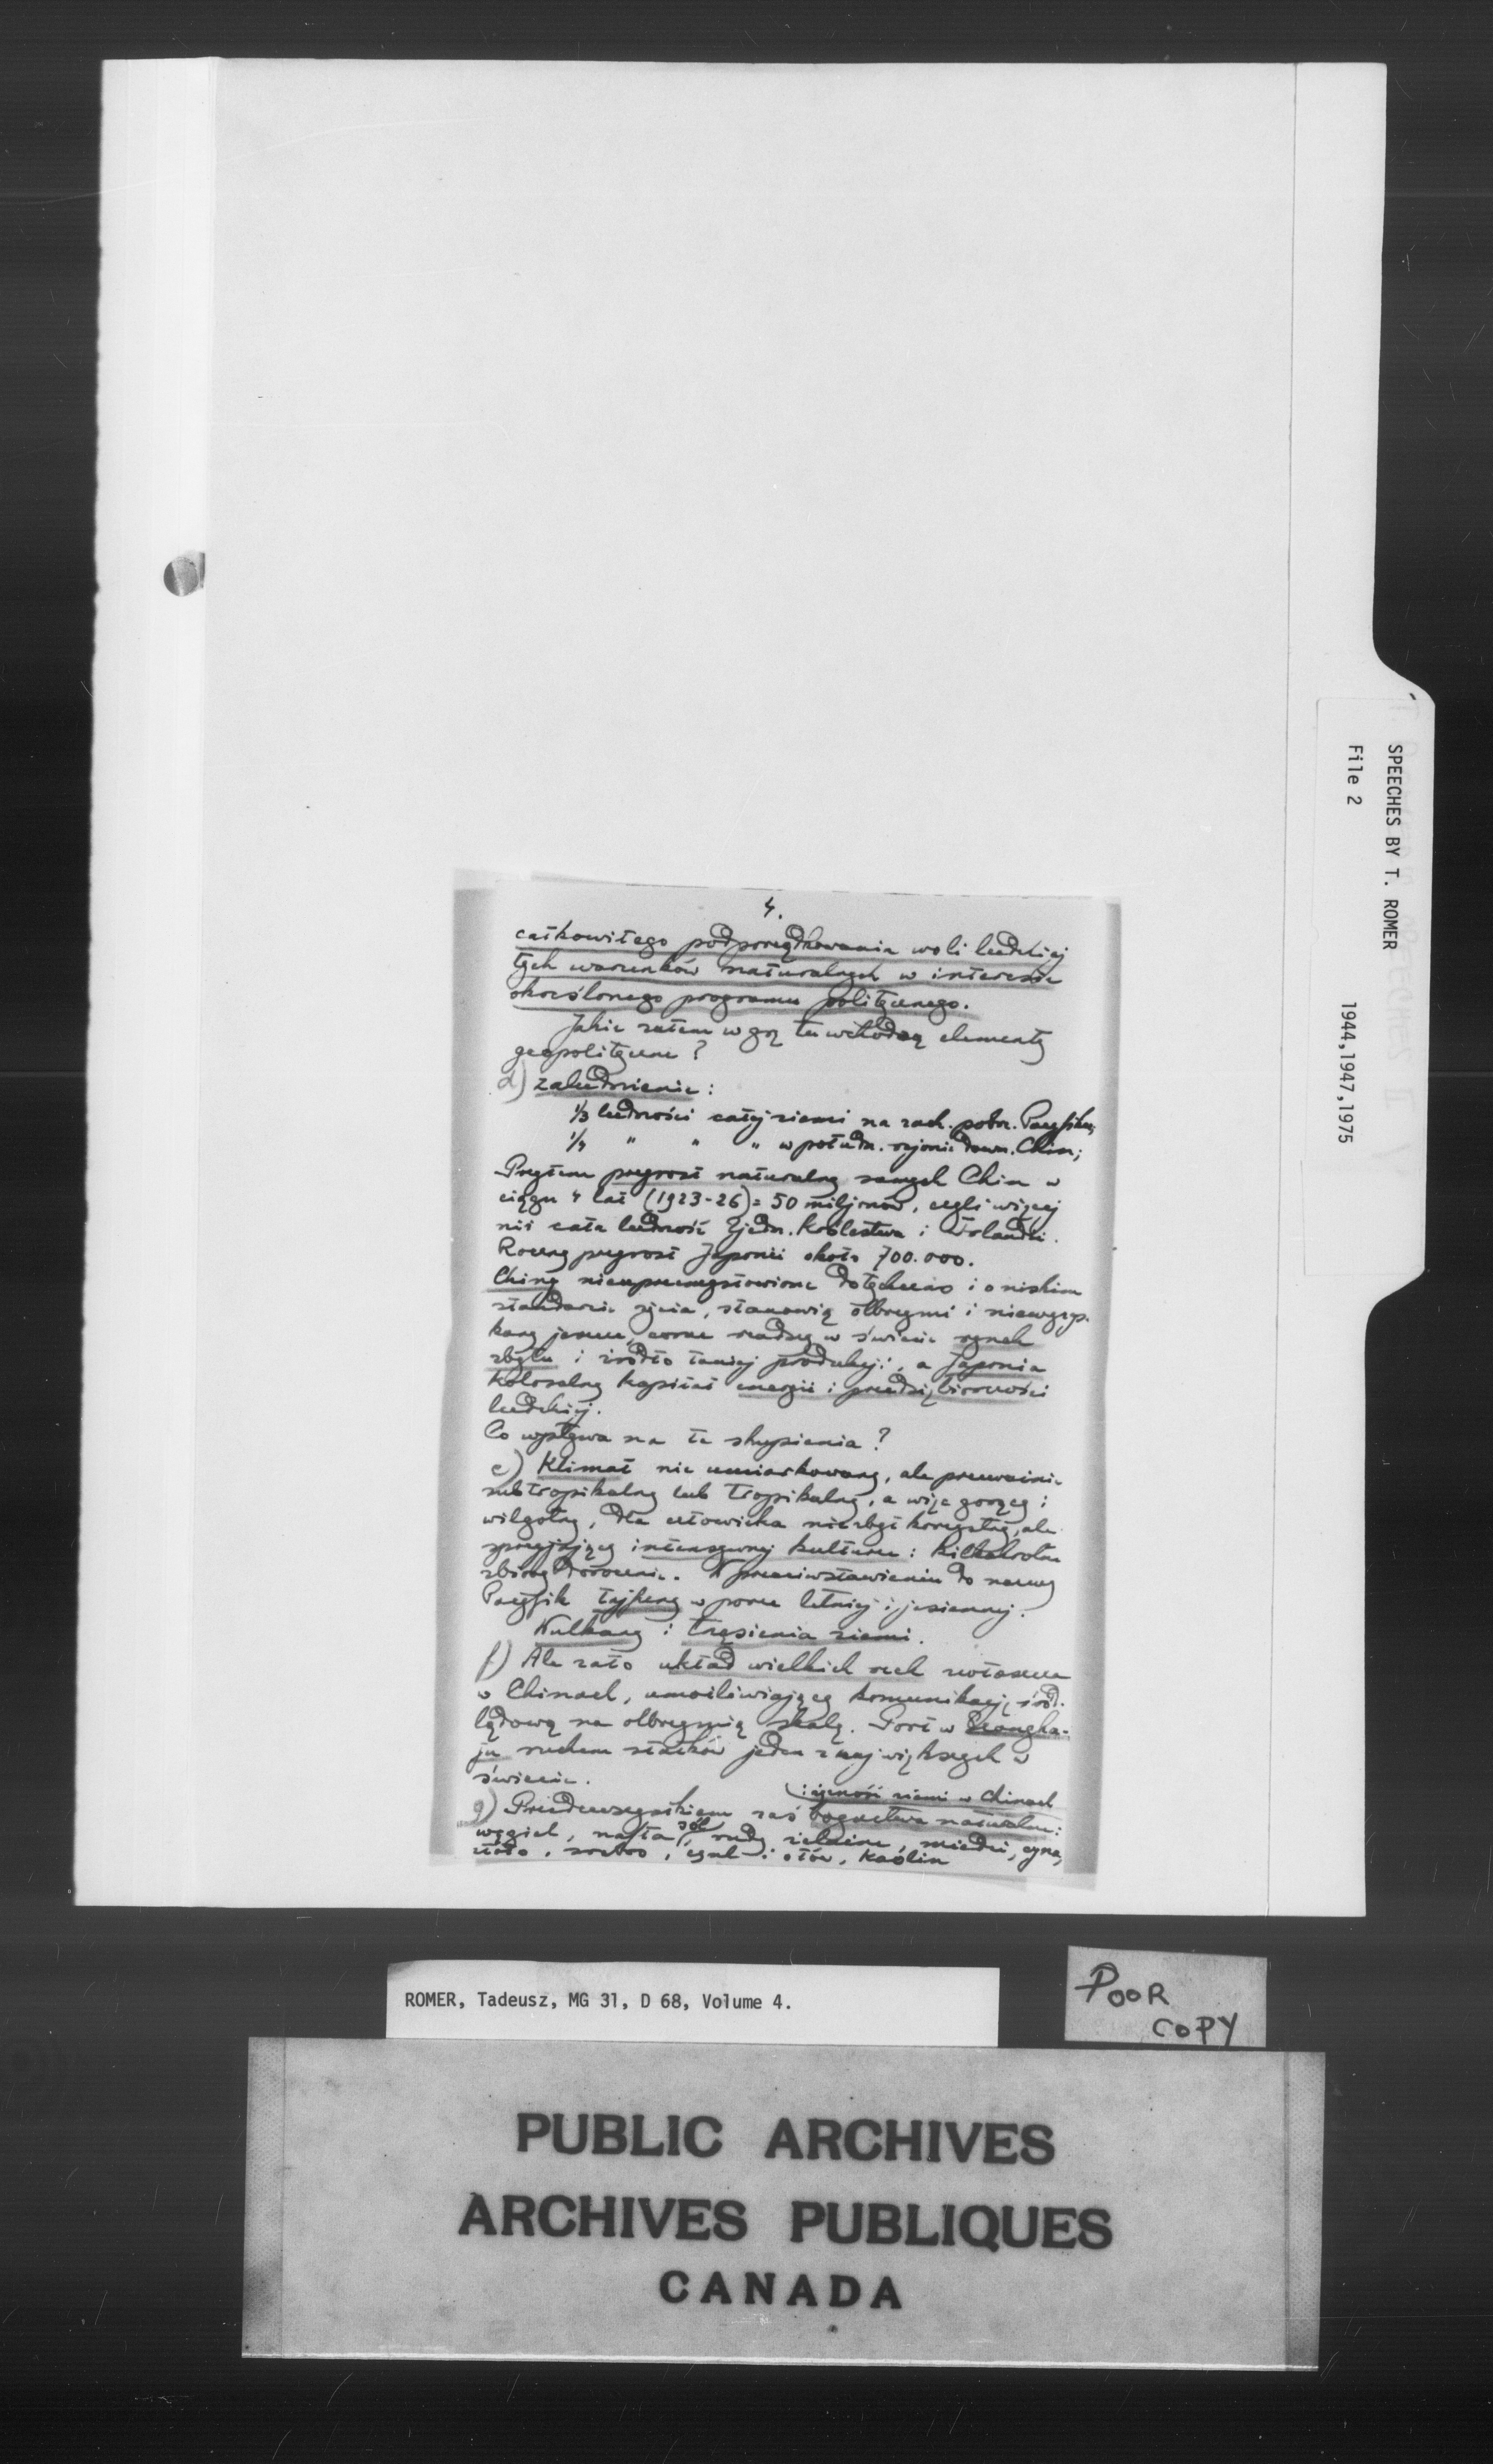 4.
całkowitego podporządkowania woli ludzkiej
tych warunków naturalnych w interesie
określonego programu politycznego.
Jakie zatem w grę tu wchodzą elementy
geopolityczne ?
d) zaludnienie :
1/3 ludności całej ziemi na zach. pobrz. Pacyfiku;
1/4 " " " w połudn. rejonie dawn. Chin;
Przytem przyrost naturalny samych Chin w
ciągu 4 lat (1923-26) = 50 miljonów, czyli więcej
niż cała ludność Zjedn. Królestwa i Irlandii.
Roczny przyrost Japonii około 700.000.
Chiny nieuprzemysłowione dotychczas i o niskim
standarcie życia, stanowią olbrzymi i niewyczer-
kany jeszcze, coraz rzadszy w świecie rynek
zbytu i źródło taniej produkcji, a Japonia
kolosalny kapitał energii i przedsiębiorczości
ludzkiej.
Co wpływa na te skupienia ?
e) Klimat nie umiarkowany, ale przeważnie
subtropikalny lub tropikalny, a więc gorący i
wilgotny, dla człowieka niezbyt korzystny, ale
sprzyjający intensywnej kulturze : kilkakrotne
zbiory dorocznie. W przeciwstawieniu do nazwy
Pacyfik tajfuny w porze letniej i jesiennej.
Wulkany i trzęsienia ziemi.
f) Ale zato układ wielkich rzek zwłaszcza
w Chinach, umożliwiający komunikację śród-
lądową na olbrzymią skalę. Port w Szangha-
ju ruchem statków jeden z największych w
świecie.
i żyzność ziemi w Chinach
g) Przedewszystkiem zaś bogactwa naturalne :
węgiel, nafta, sól, rudy żelazne, miedzi, cyna,
złoto, srebro, cynk i ołów, kaolin
SPEECHES BY T. ROMER
File 2
1944,1947,1975
ROMER, Tadeusz, MG 31, D 68, Volume 4.
POOR
COPY
PUBLIC ARCHIVES
ARCHIVES PUBLIQUES
CANADA